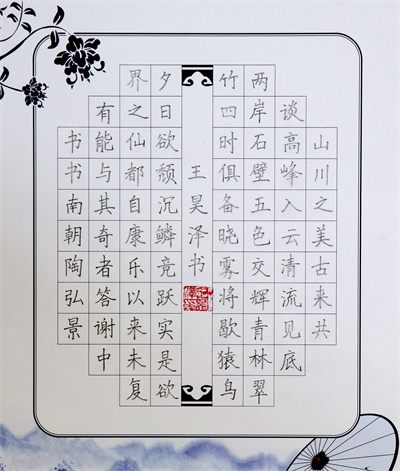 山川之美古来共
谈高峰入云清流见底
两岸石壁五色交辉青林翠
竹四时俱备晓雾将歇猿鸟
王昊泽书
夕日欲颓沉鳞竞跃实是欲
界之仙都自康乐以来未复
有能与其奇者答谢中
书书南朝陶弘景